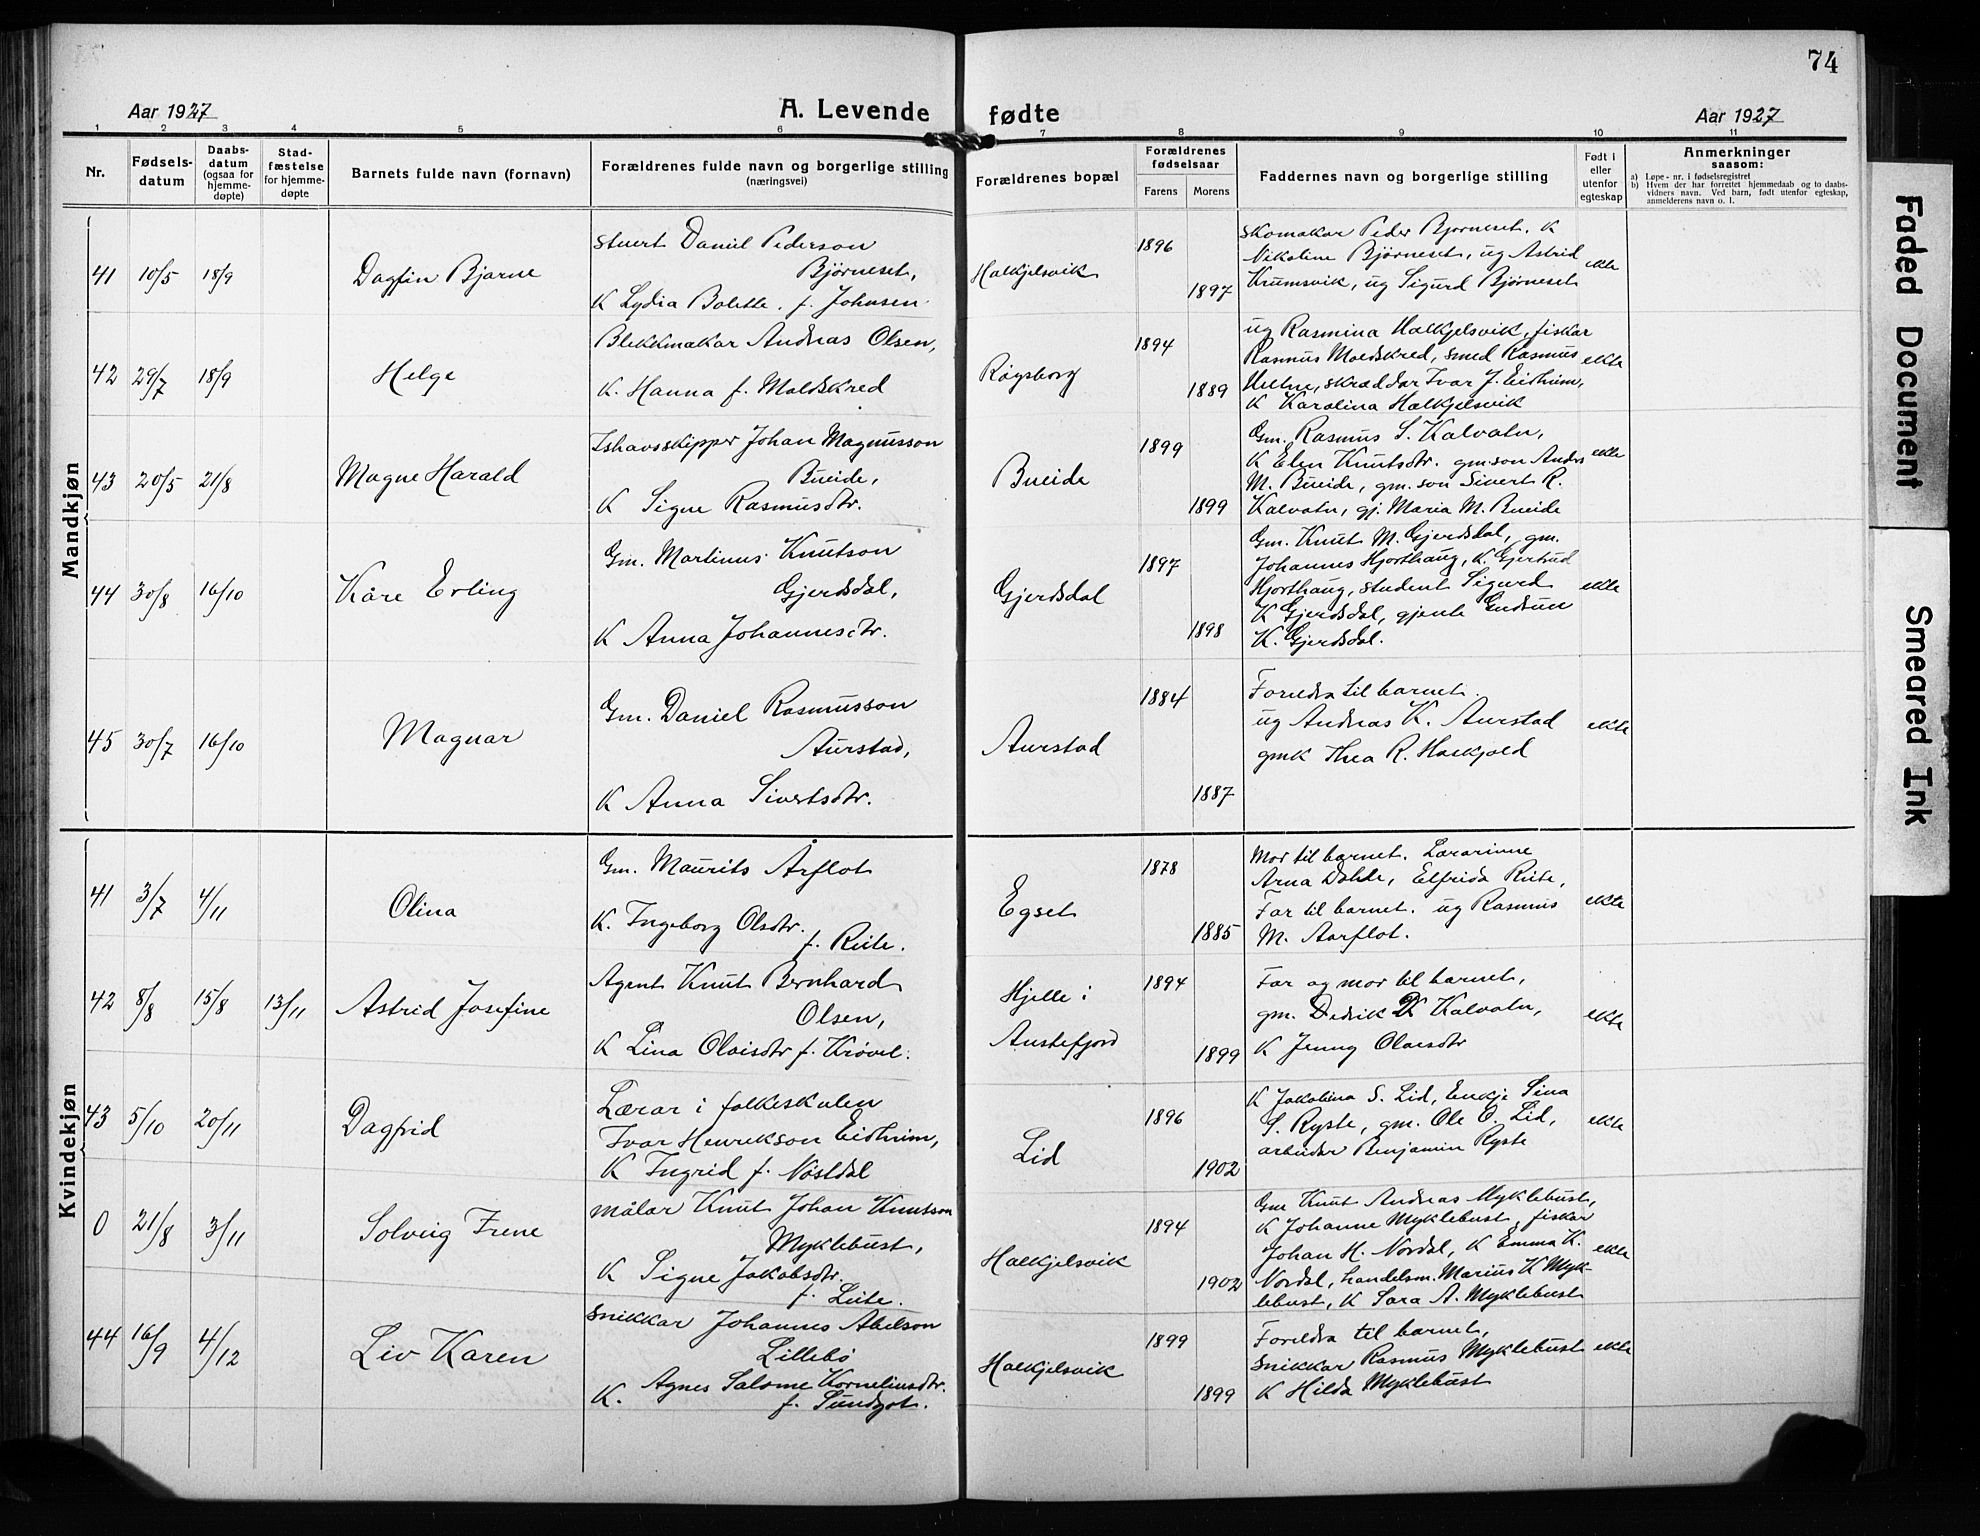 74
Aar 1927
A. Levende fødte
Aar 1927
1 2 3 4 5 6 7 8 9 10 11
Nr.
Fødsels-
datum
Daabs-
datum
(ogsaa for
hjemme-
døpte)
Stad-
fæstelse
for hjemme-
døpte
Barnets fulde navn (fornavn)
Forældrenes fulde navn og borgerlige stilling
(næringsvei)
Forældrenes bopæl
Forældrenes
fødselsaar
Farens Morens
Faddernes navn og borgerlige stilling
Født i
eller
utenfor
egteskap
Anmerkninger
saasom:
a) Løpe-nr. i fødselsregistret
b) Hvem der har forrettet hjemmedaab og to daabs-
vidners navn. Ved barn, født utenfor egteskap,
anmelderens navn o. l.
Mandkjøn
41 10/5 18/9 Dagfin Bjarne
Stuert Daniel Pederson
Bjørneset,
K Lydia Bolette f. Johnsen
Halkjelsvik
1896
1897
Skomakar Peder Bjørneset, K
Nikoline Bjørneset, ug Astrid
Krumsvik, ug Sigurd Bjørneset
ekte
42 29/7 18/9 Helge
Blekkmakar Andreas Olsen,
K. Hanna f. Moldskred
Røysborg
1894
1889
ug Rasmina Halkjelsvik, fiskar
Rasmus Moldskred, smed Rasmus
skræddar Ivar J. Eidheim,
K Karolina Halkjelsvik
ekte
43 20/5 21/8 Magne Harald
Ishavsskipper Johan Magnusson
Bueide,
K Signe Rasmusdtr.
Bueide
1899
1899
Gm. Rasmus S. Kalvatn,
K Elen Knutsdtr. gm.son Anders
M. Bueide, gm. son Sivert R.
Kalvatn, gj. Maria M. Bueide
ekte
44 30/8 16/10 Kåre Erling
Gm. Martinus Knutson
Gjerdsdal,
K Anna Johannesdtr.
Gjerdsdal
1897
1898
Gm. Knut M. Gjerdsdal, gm.
Johannes Hjorthaug, K. Gjertrud
Hjorthaug, student Sigurd
K Gjerdsdal, gjente Gudrun
K. Gjerdsdal.
ekte
45 30/7 16/10 Magnar
Gm. Daniel Rasmusson
Aurstad,
K Anna Sivertsdtr.
Aurstad
1884
1887
Foreldra til barnet.
ug Andreas K. Aurstad
gmk Thea R. Haskjold
ekte
Kvindekjøn
41 3/7 4/11 Olina
Gm. Maurits Årflot
K. Ingeborg Olsdtr.
f. Riite.
Egset
1878
1885
Mor til barnet. Lærarinne
Arna Dahle, Elfrida Riite,
Far til barnet. ug Rasmus
M. Aarflot.
ekte
42 8/8 15/8 13/11 Astrid Josefine
Agent Knut Bernhard
Olsen,
K Lina Olaisdtr f. Krøvel.
Hjelle i
Austefjord
1894
1899
Far og mor til barnet,
gm. Didrik K Kalvatn,
K Jenny Olaisdtr
ekte
43 5/10 20/11 Dagfrid
Lærar i folkeskulen
Ivar Henrikson Eidheim,
K Ingrid f. Nøstdal
Lid
1896
1902
K Jakobina S. Lid, Enkje Sina
S. Ryste, gm. Ole O. Lid,
arbeider Benjamin Ryste
ekte
0 21/8 3/11 Solveig Irene
Målar Knut Johan Knutson
Myklebust,
K Signe Jakobsdtr.
f. Leite.
Halkjelsvik
1894
1902
Gm Knut Andreas Myklebust,
K Johanne Myklebust, fiskar
Johan H. Nordal, K Emma K.
Nordal, handelsm. Marius K Myk-
lebust, K Sara A. Myklebust
ekte
44 16/9 4/12 Liv Karen
Snikkar Johannes Abelson
Lillebø
K. Agnes Salome Korneliusdtr.
f. Sundgot.
Halkjelsvik
1899
1899
Foreldra til barnet,
snikkar Rasmus Myklebust
K Hilda Myklebust
ekte
Faded Document
Smeared Ink